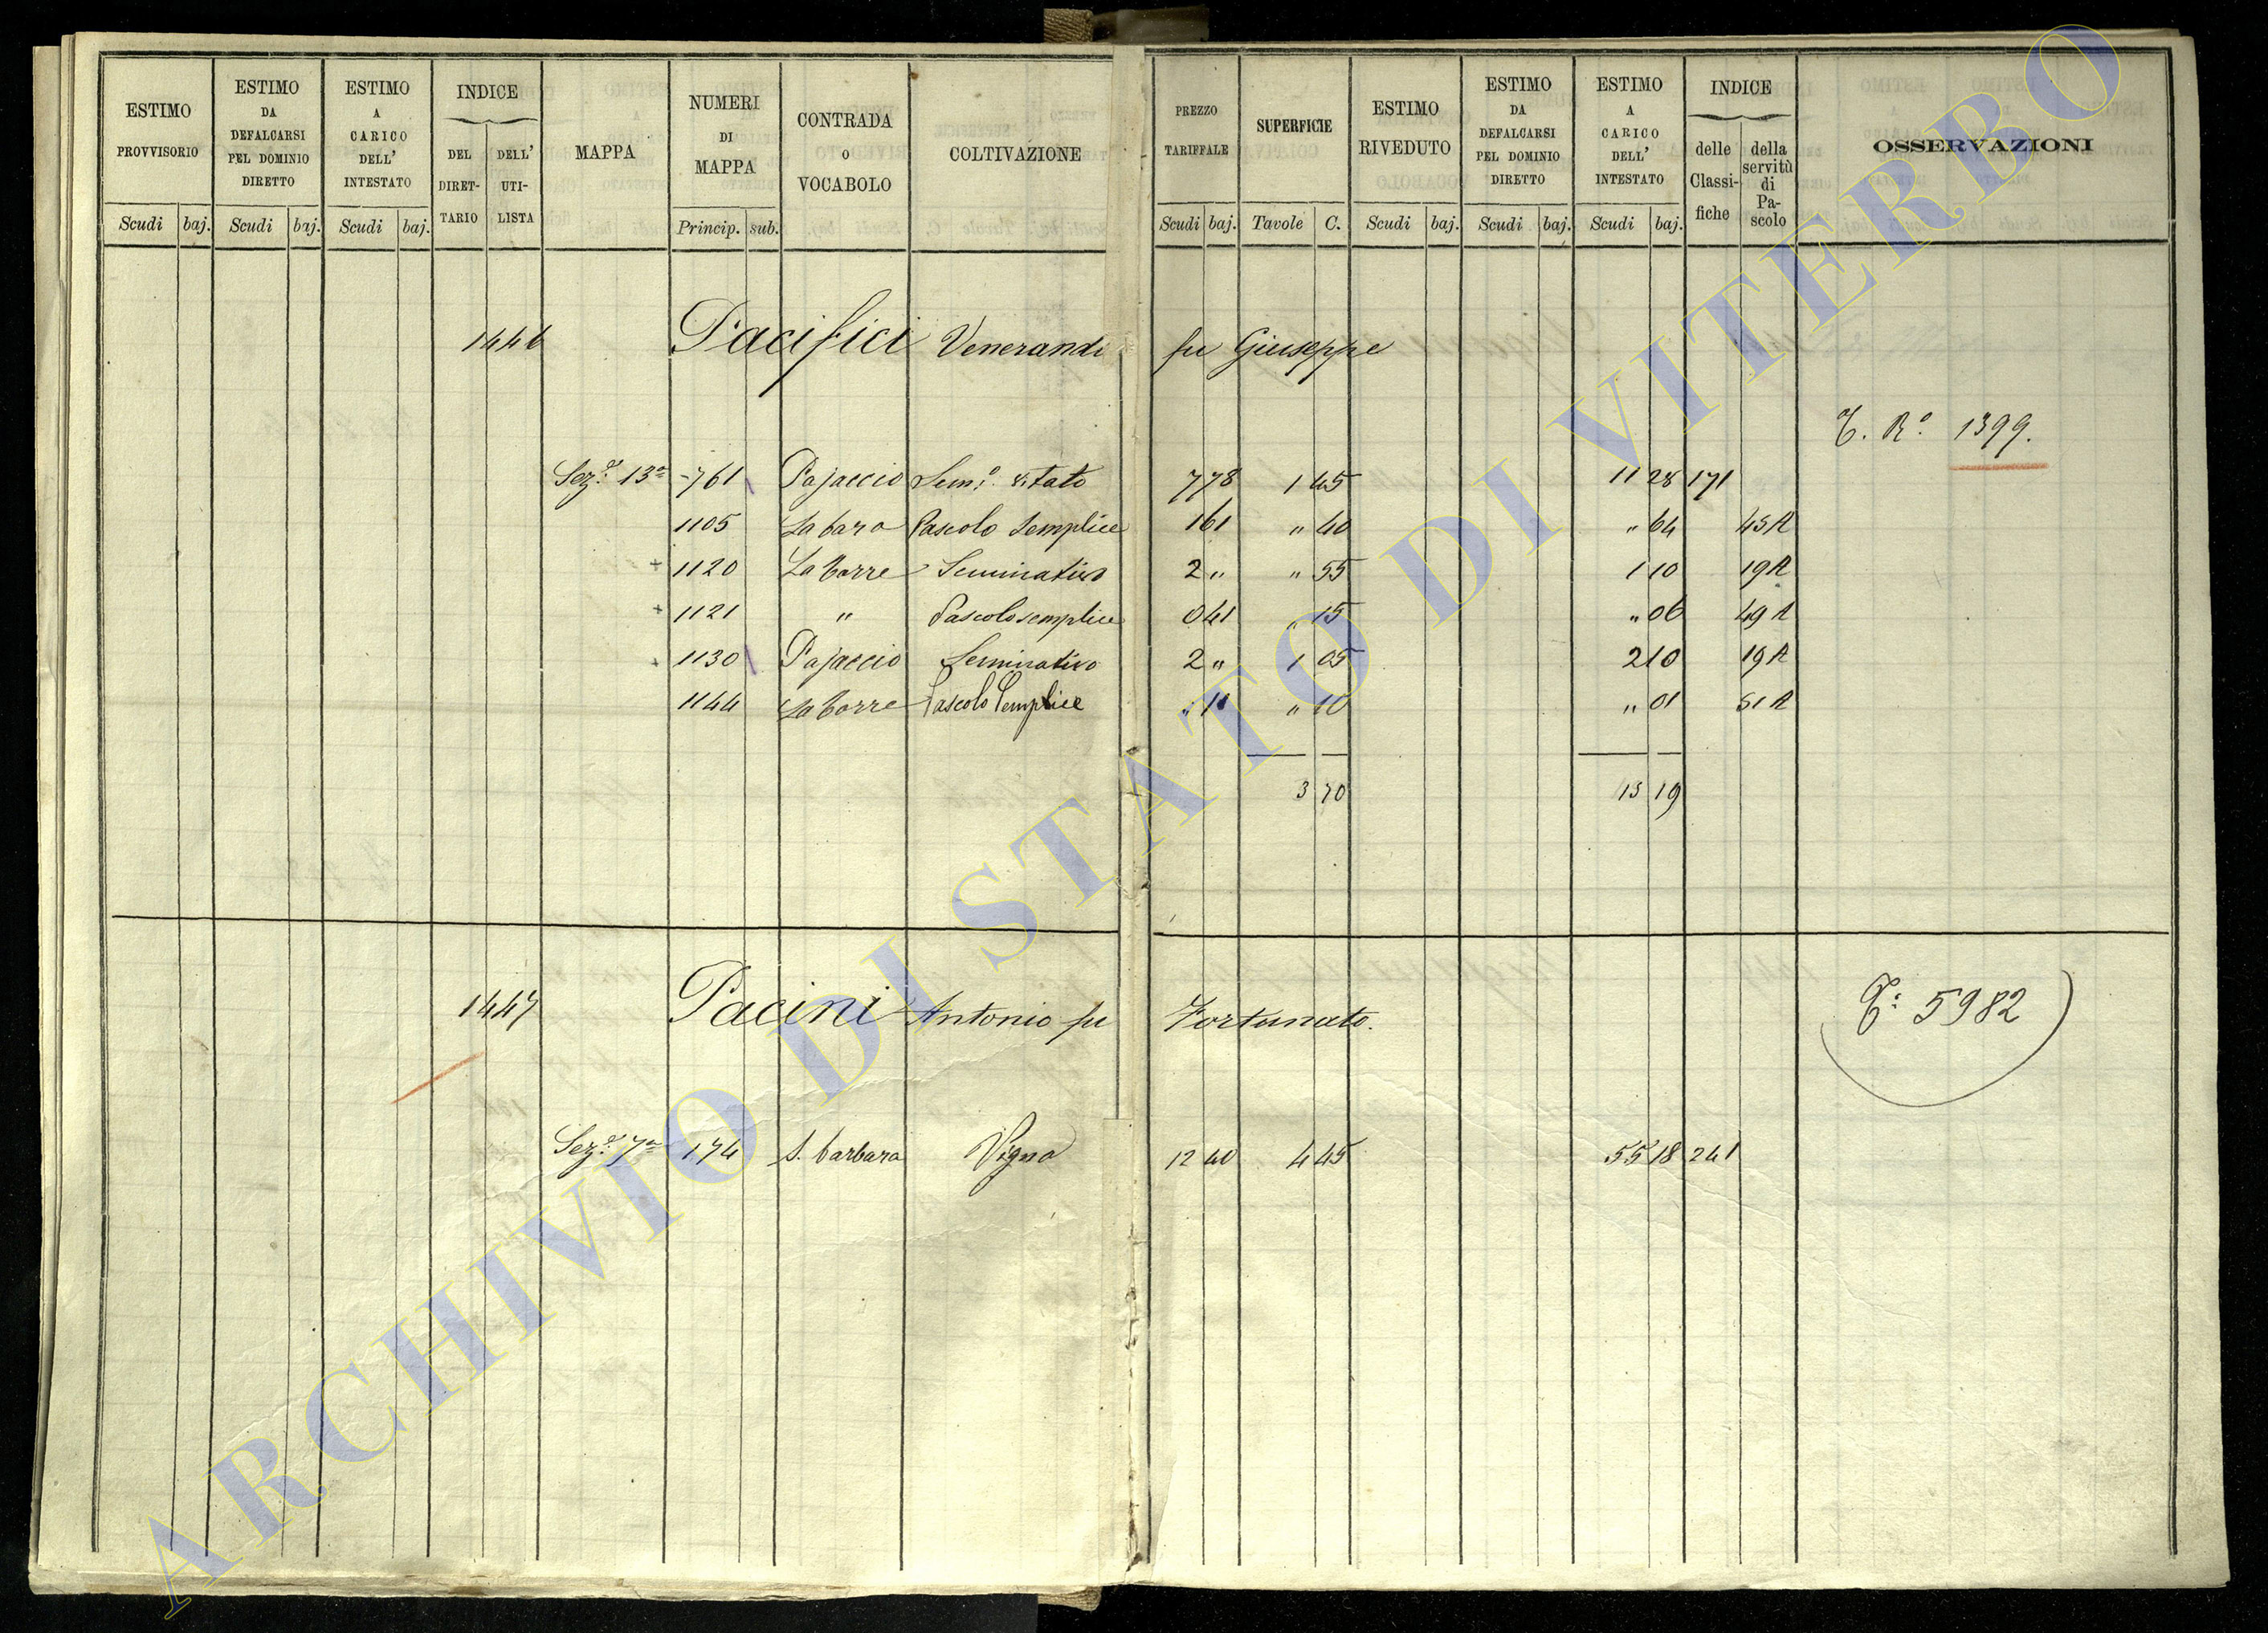 ESTIMO PROVVISORIO Scudi baj.
ESTIMO DA DEFALCARSI PEL DOMINIO DIRETTO Scudi baj.
ESTIMO A CARICO DELL' INTESTATO Scudi baj.
INDICE DEL DIRET-TARIO DELL' UTI-LISTA
MAPPA
NUMERI DI MAPPA Princip. sub.
CONTRADA O VOCABOLO
COLTIVAZIONE
PREZZO TARIFFALE Scudi baj.
SUPERFICIE Tavole C.
ESTIMO RIVEDUTO Scudi baj.
ESTIMO DA DEFALCARSI PEL DOMINIO DIRETTO Scudi baj.
ESTIMO A CARICO DELL' INTESTATO Scudi baj.
INDICE delle Classi-fiche della servitù di Pa-scolo
OSSERVAZIONI
1446 Pacifici Venerandi fu Giuseppe
T. Rº. 1399.
Sezº. 13ª 761 Pajaccio Semº. vitato 7 78 1 45 11 28 171
1105 La bara Pascolo Semplice 1 61 " 40 " 64 45 A
+ 1120 La Torre Seminativo 2 " " 55 1 10 19 A
+ 1121 " Pascolo semplice 0 41 " 15 " 06 49 A
+ 1130 Pajaccio Seminativo 2 " 1 05 2 10 19 A
1144 La Torre Pascolo Semplice " 11 " 10 " 01 51 A
3 70 15 19
1447 Pacini Antonio fu Fortunato.
T: 5982
Sezº. 7ª 174 S. barbara Vigna 12 40 4 45 55 18 241
ARCHIVIO DI STATO DI VITERBO